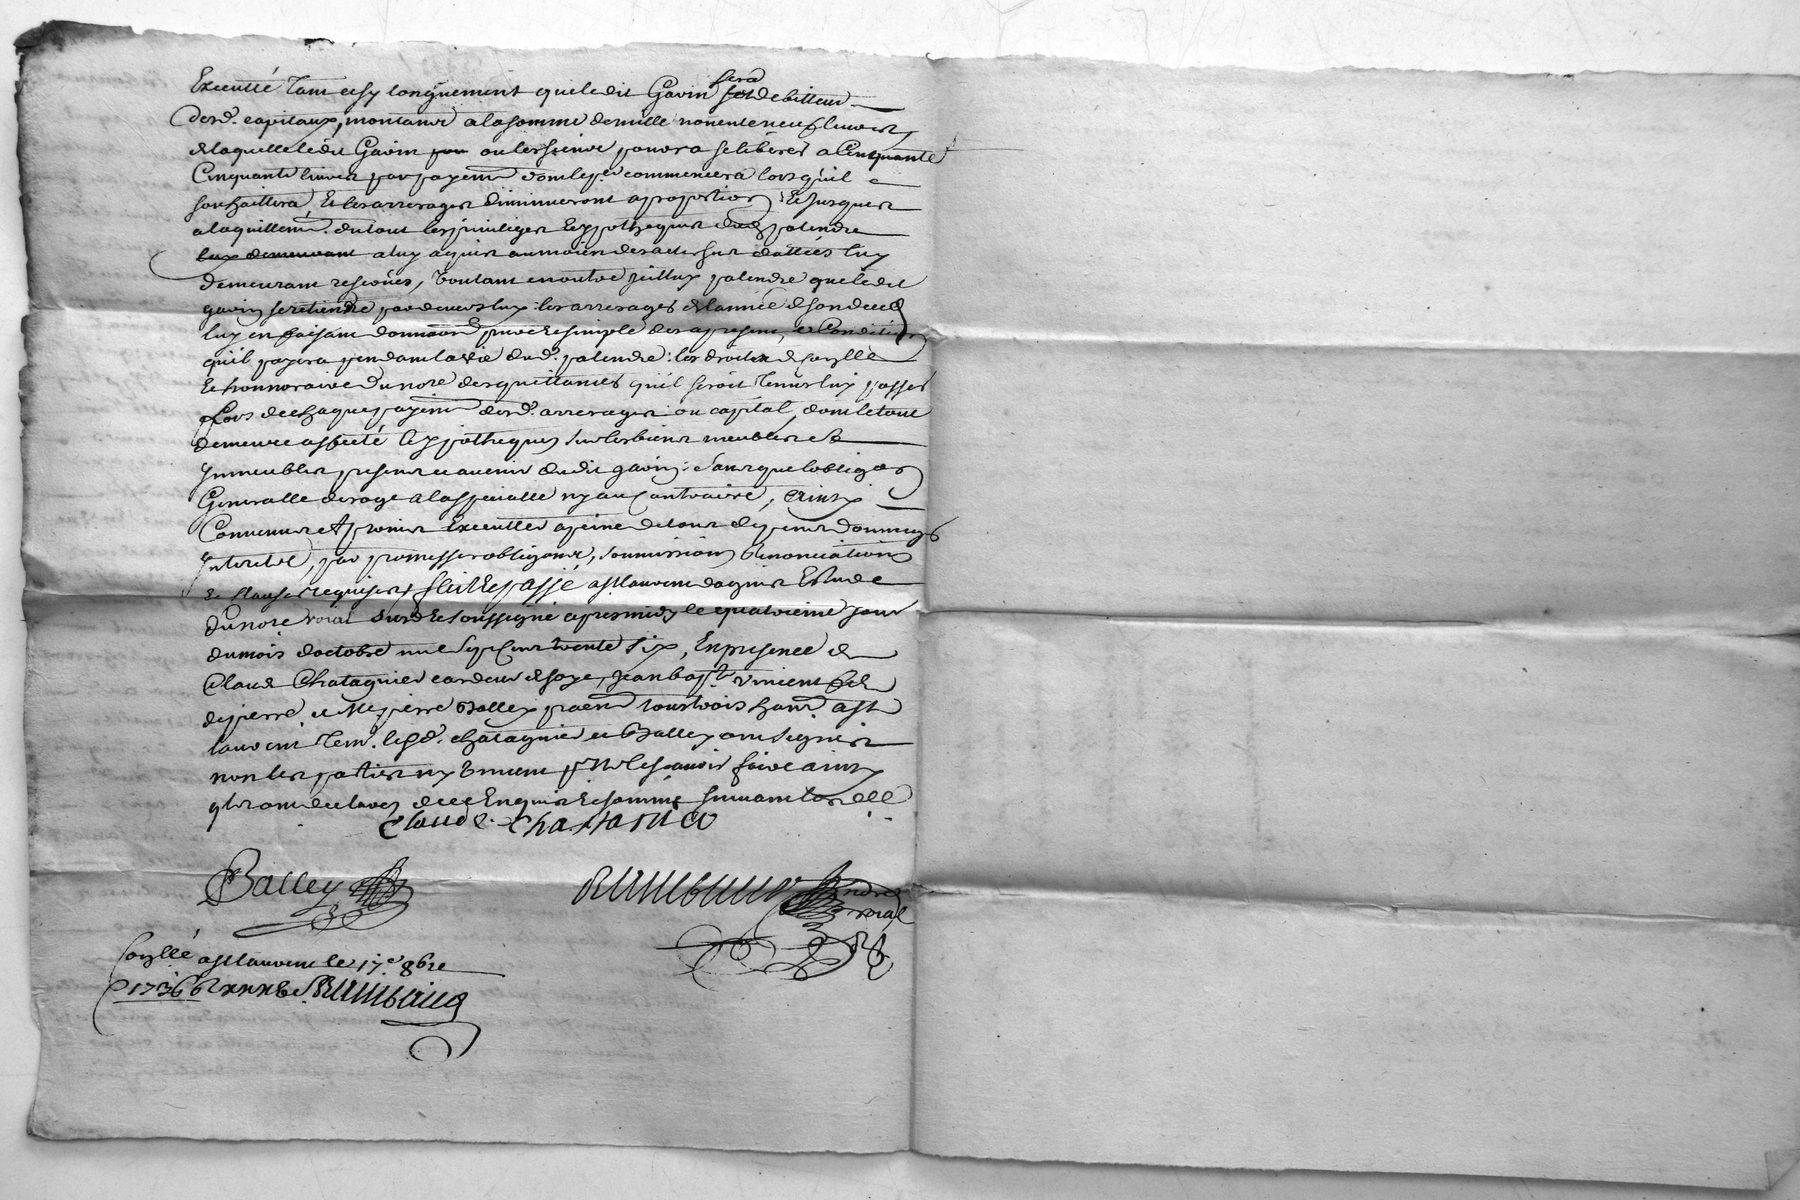 Executté Tant et sy longuement que ledit Gavin sera debitteur
desd. capitaux, montant a la somme de mille nonente neuf livres,
de laquelle ledit Gavin ou les siens pourra se liberer a Cinquante
Cinquante livres par payement dont le per commencera lorsqu'il
souhaittera, Et les arrerages diminueront a proportion, Et jusques
a laquittem. du tout les privileges Et hypotheques dud palendre
lux demeurant a luy aquis au moien des actes sur dattés luy
demeurant reservés, voulant en outre icelluy palendre que ledit
gavin se retienne par devers luy les arrerages de lannée de son deced
luy en faisant donnaon pure et simple des a present, a Condition
quil payera pendant la vie dud. palendre les droits de scyllé
Et honnoraire du nore des quittances quil seroit Tenus luy passer
Lors de chaque payem desd. arrerages ou capital, dont le tout
demeure affecté Et hypothequé sur les biens meubles et
Immeubles presents et avenir dudit gavin, Sans que lobligaon
Generalle deroge a la specialle ny au contraire, Et ainsy
Convenu et promis Executter a peine de tous depens dommages
Interets, par promesses obligaons, soumissions Renonciations
& clauses requises, fait Et passé a st laurent dagnis Estude
du nore roial sursd Et soussigné apres midy le quatrieme jour
du mois doctobre mil sept cent trente six, En presence de
Claude Chatagnier cardeur de soye, jean bapt. vincent fils
de pierre, et Me pierre Balley praen tous trois hants a st
laurent Tem. lesd. chatagnier et Balley ont signés
non les parties ny vincent pr ne le scavoir faire ainsy
quils ont declarés de ce Enquis Et sommés suivant lord
Claude Chattanié
Balley
Rimbaud nore roial
scyllé a st laurent le 17e 8bre
1736 Rimbaud